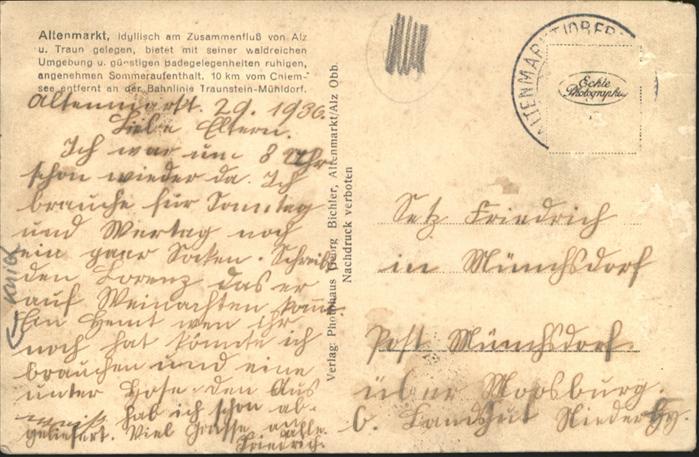 Altenmarkt, idyllisch am Zusammenfluß von Alz
u. Traun gelegen, bietet mit seiner waldreichen
Umgebung u. günstigen Badegelegenheiten ruhigen,
angenehmen Sommeraufenthalt. 10 km vom Chiem-
see entfernt an der Bahnlinie Traunstein-Mühldorf.
Altenmarkt. 29. 1936.
Liebe Eltern.
Ich war um 8 Uhr
schon wieder da. Ich
brauche für Sonntag
und Wertag noch
ein paar Socken. Schreib
den Lorenz das er
auf Weinachten kommt.
Ein Hemt wen ihr
noch hat könnte ich
brauchen und eine
unter Hose. den Aus
weiß hab ich schon ab-
geliefert. Viel Grüße an alle
Friedrich.
Verlag: Photohaus Georg Bichler, Altenmarkt/Alz Obb.
Nachdruck verboten
ALTENMARKT (OBERB
Echte
Photographie
Setz Friedrich
in Münchsdorf
Post Münchsdorf.
über Moosburg.
b. Landshut Niederby.